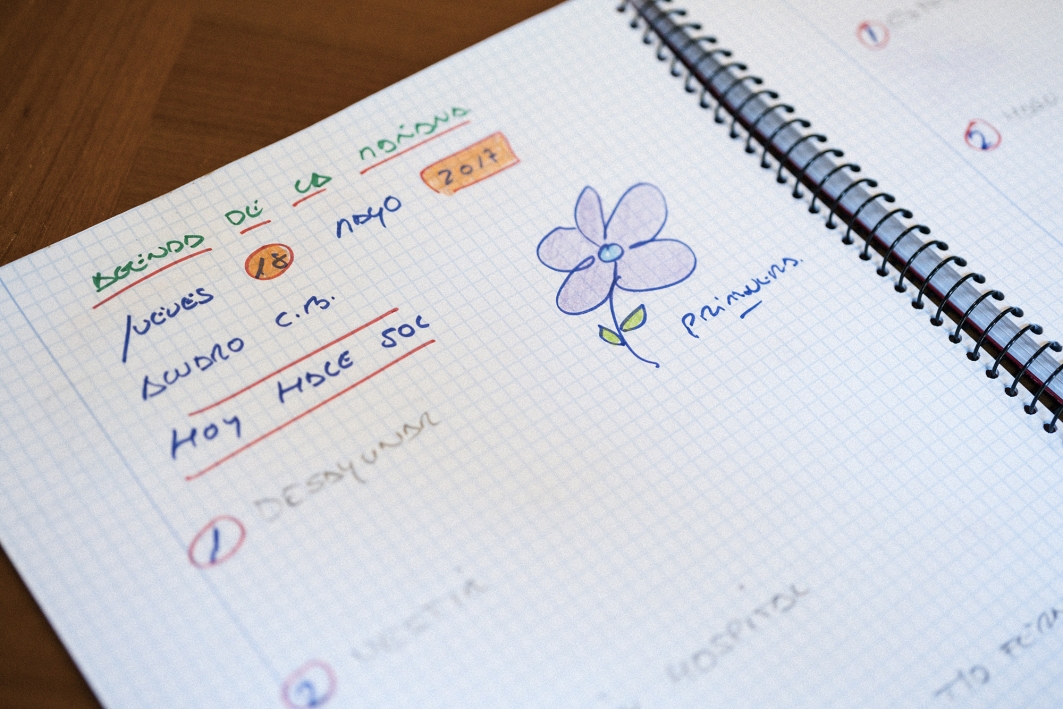 AGENDA DE LA MAÑANA
JUEVES 18 MAYO 2017
ALVARO C.B.
HOY HACE SOL
PRIMAVERA.
1 DESAYUNAR
2 VESTIR
HOSPITAL
TIO
1
2